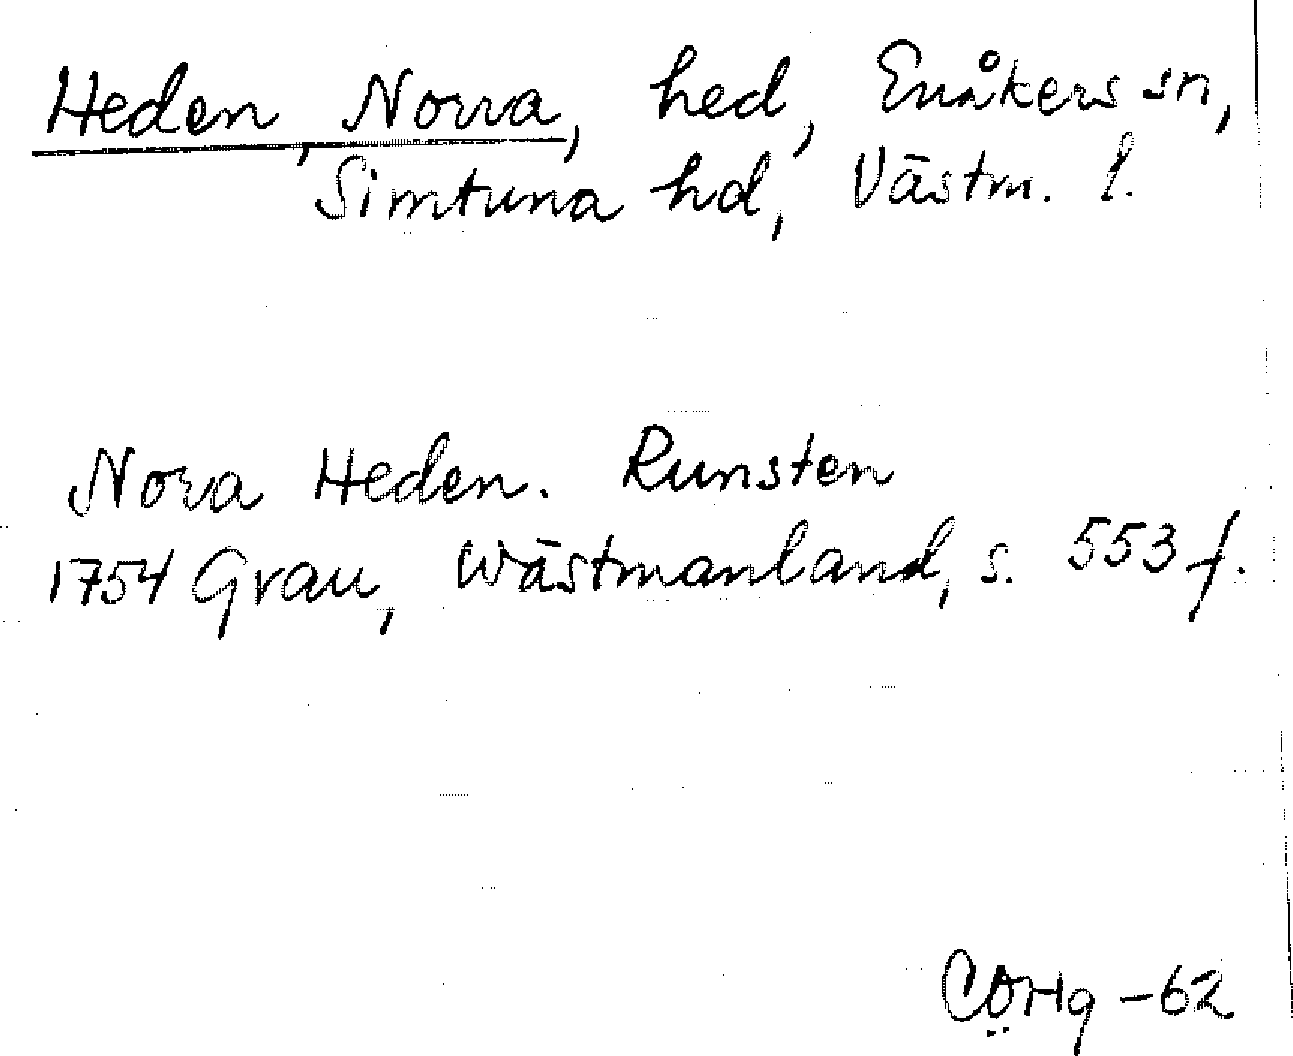 Heden, Norra, hed, Enåkers sn,
Simtuna hd, Västm. l.
Nora Heden. Runsten
1754 Grau, Wästmanland, s. 553 f.
CÖHg -62